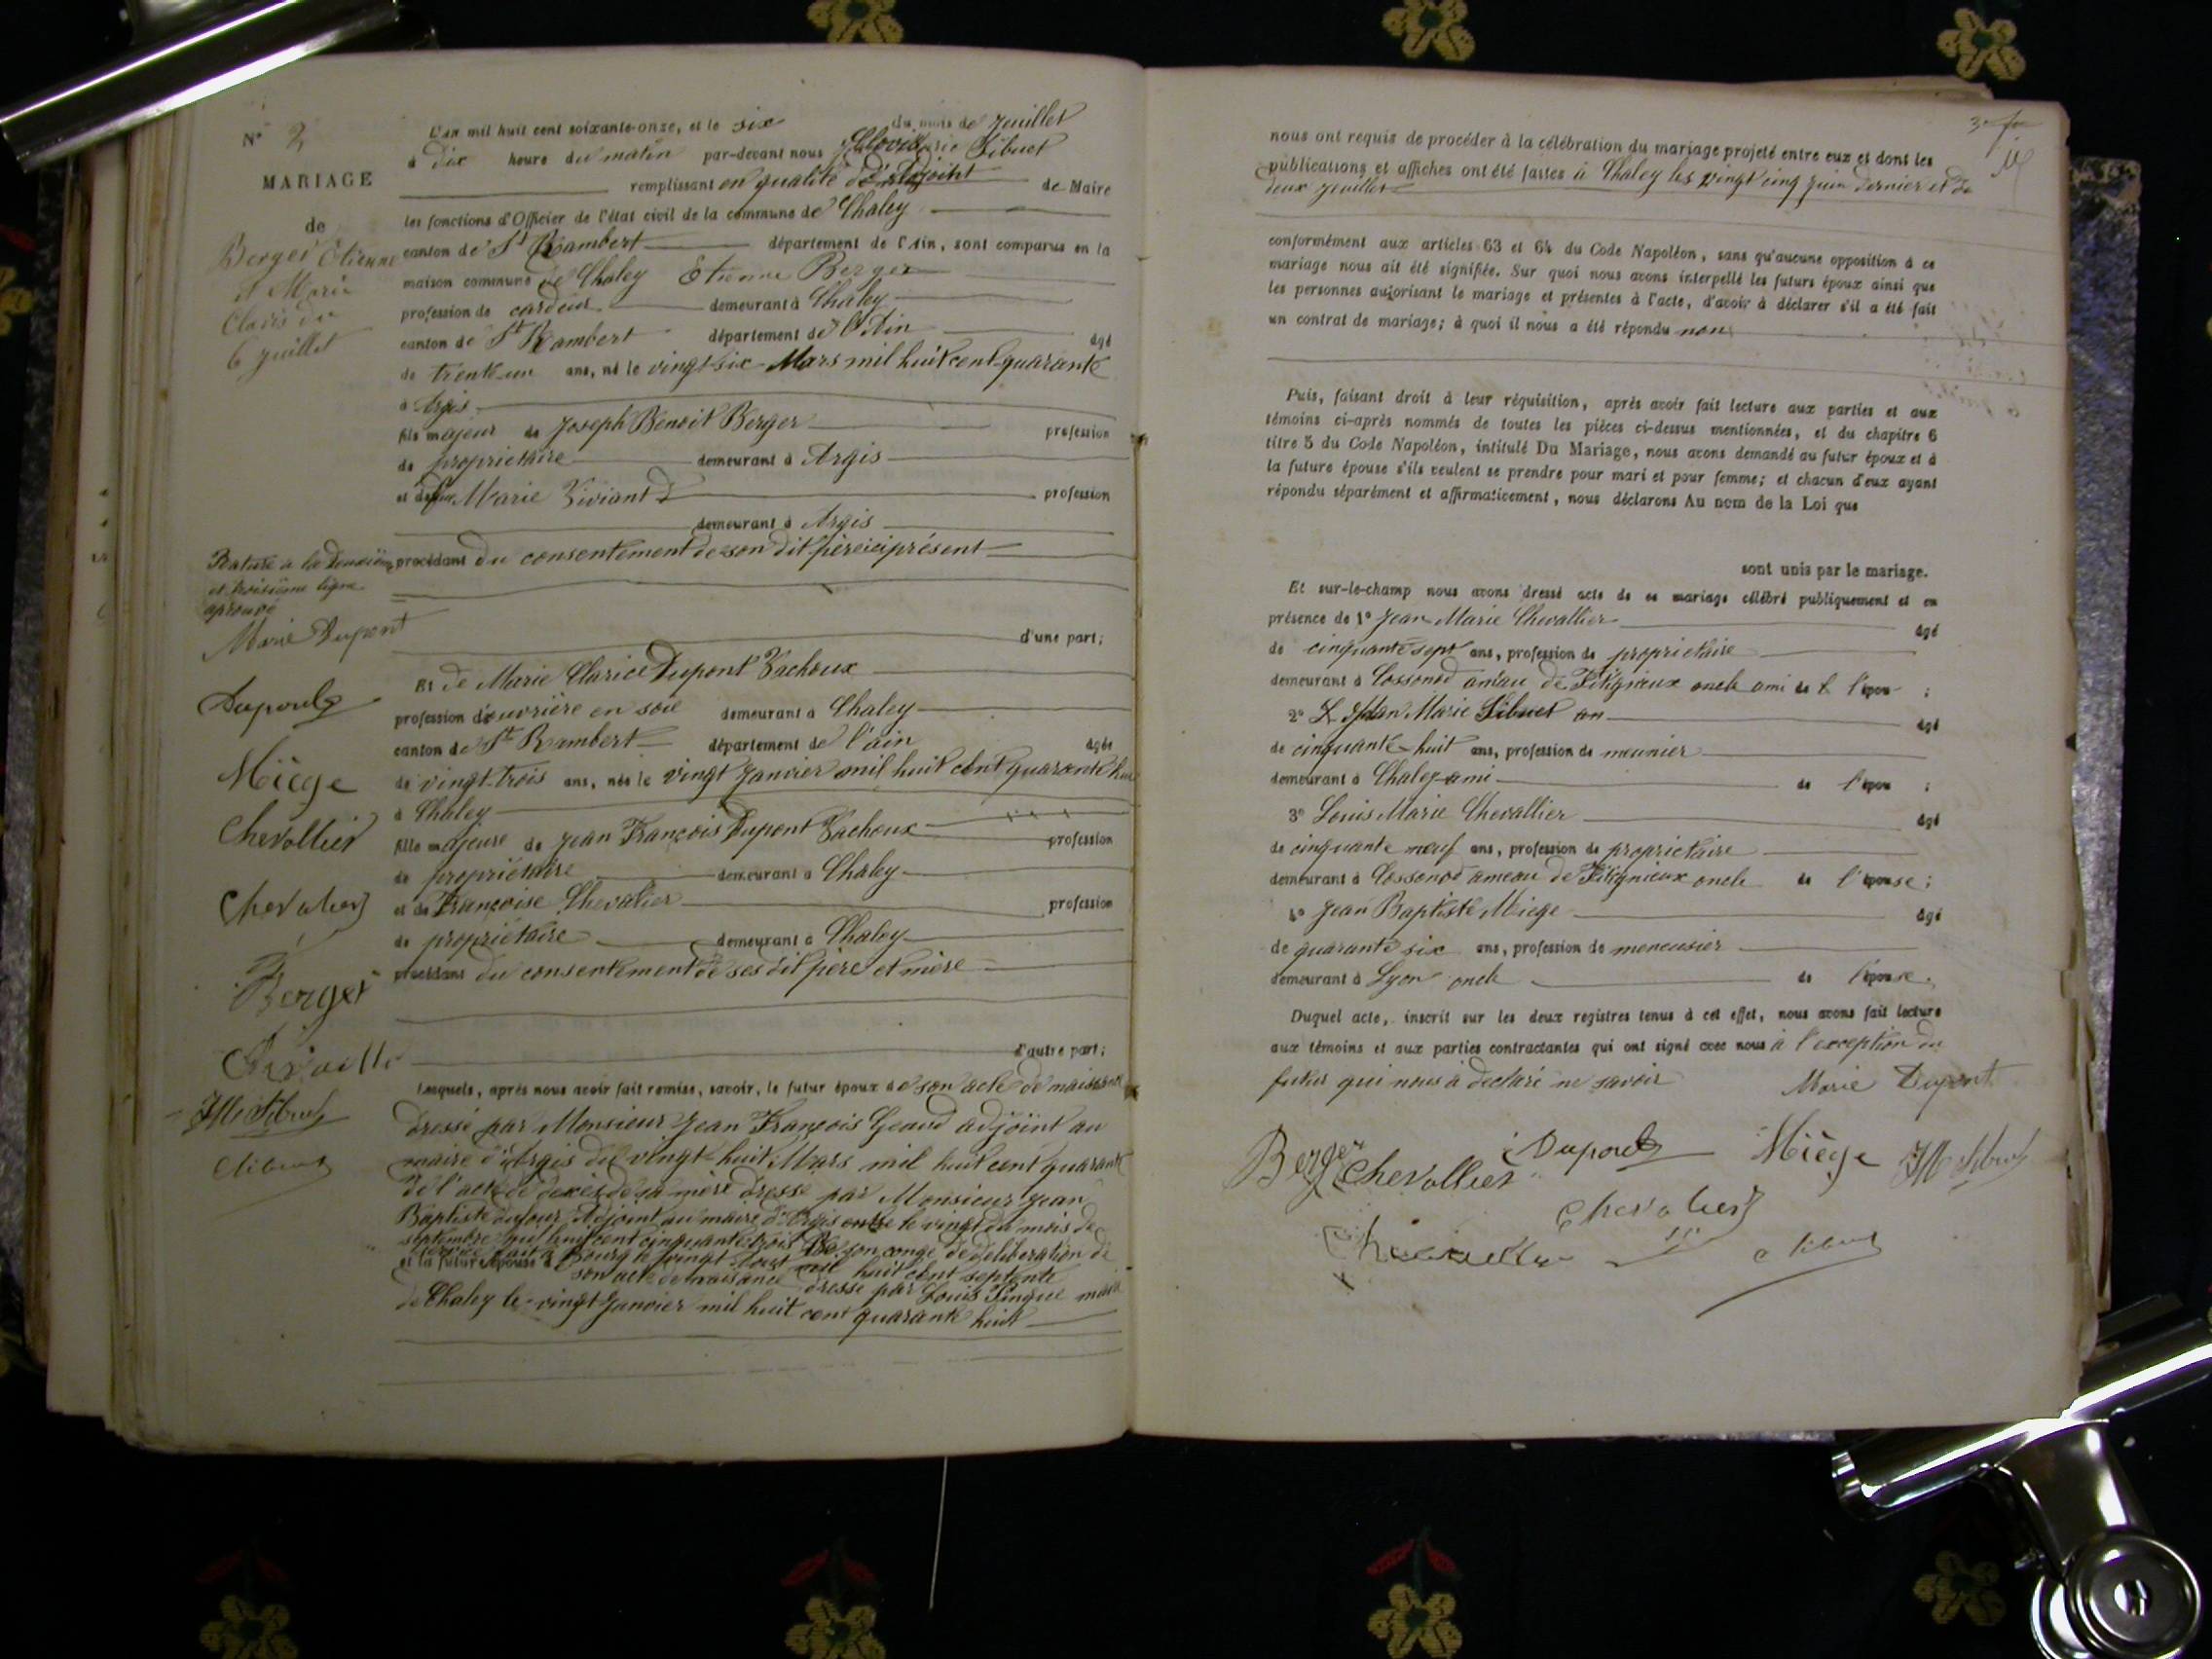 N° 2
MARIAGE
de
Berger Etienne
et Marie
Claris du
6 juillet
L'an mil huit cent soixante-onze, et le six du mois de juillet
à dix heure du matin par-devant nous Sibuet
remplissant en qualité d'adjoint de Maire
les fonctions d'Officier de l'état civil de la commune de Chaley
canton de St Rambert département de l'Ain, sont comparus en la
maison commune de Chaley Etienne Berger
profession de cardeur demeurant à Chaley
canton de St Rambert département de l'Ain âgé
de trente-un ans, né le vingt-six Mars mil huit cent quarante
à Argis
fils majeur de Joseph Benoit Berger profession
de propriétaire demeurant à Argis
et de feu Marie Viviant profession
demeurant à Argis
procédant du consentement de son dit père ici présent
d'une part;
Rature à la deuxième
et troisième ligne
aprouvé
Marie Dupont
Et de Marie Clarice Dupont Vachoux
profession d'ouvrière en soie demeurant à Chaley
canton de St Rambert département de l'ain âgée
de vingt-trois ans, née le vingt Janvier mil huit cent quarante huit
à Chaley
fille majeure de Jean François Dupont Vachoux profession
de propriétaire demeurant à Chaley
et de Françoise Chevalier profession
de propriétaire demeurant à Chaley
procédant du consentement de ses dit père et mère
d'autre part;
Lesquels, après nous avoir fait remise, savoir, le futur époux de son acte de naissance
dressé par Monsieur Jean François Geaud adjoint au
maire d'Argis du vingt huit Mars mil huit cent quarante
De l'acte de decès de sa mère dressé par Monsieur Jean
Baptiste dufour Adjoint au maire d'Argis le vingt du mois de
septembre mil huit cent cinquante trois De son congé de deliberation de
service fait à Bourg le vingt Aout mil huit cent septente
et la future épouse de son acte de naisance dressé par Louis Pingue maire
de Chaley le vingt Janvier mil huit cent quarante huit
Dupont
Miège
Chevallier
Chevalier
Berger
JM Sibuet
nous ont requis de procéder à la célébration du mariage projeté entre eux et dont les
publications et affiches ont été faites à Chaley les vingt cinq juin dernier et du
deux juillet
conformément aux articles 63 et 64 du Code Napoléon, sans qu'aucune opposition à ce
mariage nous ait été signifiée. Sur quoi nous avons interpellé les futurs époux ainsi que
les personnes autorisant le mariage et présentes à l'acte, d'avoir à déclarer s'il a été fait
un contrat de mariage; à quoi il nous a été répondu non
Puis, faisant droit à leur réquisition, après avoir fait lecture aux parties et aux
témoins ci-après nommés de toutes les pièces ci-dessus mentionnées, et du chapitre 6
titre 5 du Code Napoléon, intitulé Du Mariage, nous avons demandé au futur époux et à
la future épouse s'ils veulent se prendre pour mari et pour femme; et chacun d'eux ayant
répondu séparément et affirmativement, nous déclarons Au nom de la Loi que
sont unis par le mariage.
Et sur-le-champ nous avons dressé acte de ce mariage célébré publiquement et en
présence de 1° Jean Marie Chevallier âgé
de cinquante sept ans, profession de propriétaire
demeurant à Lossonod amau de Fitignieux oncle ami de l'épou ;
2° Jean Marie Sibuet âgé
de cinquante-huit ans, profession de meunier
demeurant à Chaley ami de l'épou ;
3° Louis Marie Chevallier âgé
de cinquante neuf ans, profession de propriétaire
demeurant à Lossonod ameau de Fitignieux oncle de l'épouse;
4° Jean Baptiste Miege âgé
de quarante six ans, profession de meneusier
demeurant à Lyon oncle de l'épouse.
Duquel acte, inscrit sur les deux registres tenus à cet effet, nous avons fait lecture
aux témoins et aux parties contractantes qui ont signé avec nous à l'exception du
futur qui nous à declaré ne savoir Marie Dupont
Berger Chevallier Dupont Miège JM Sibuet
Chevalier